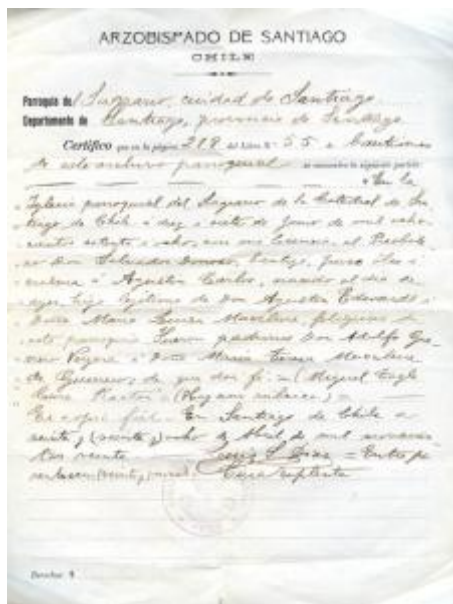 ARZOBISPADO DE SANTIAGO
CHILE
Parroquia del Sagrario, ciudad de Santiago
Departamento de Santiago, provincia de Santiago
Certifico que en la página 218 del Libro N.° 55 de Bautismos
de este archivo parroquial se encuentra la siguiente partida:
"En la
Iglesia parroquial del Sagrario de la Catedral de San-
tiago de Chile a diez i siete de de mil ocho-
cientos setenta i ocho, con mi licencia, el
Don Salvador Donoso, puso óleo i
a Agustin Carlos, nacido el dia de
ayer, hijo lejítimo de Don Agustin Edwards i
Doña Maria Luisa feligreses de
esta parroquia. Fueron padrinos Don Adolfo Gue-
rrero Vergara i Doña Maria Teresa
de Guerrero; de que doi fé. = (Miguel Tagle
Cura Rector)
Es copia fiel. En Santiago de Chile a
veinte, (veinte y) ocho de Abril de mil novecien-
tos veinte Luis Diaz = Entre pa-
rentesis (veinte y)
Cura
Derechos $